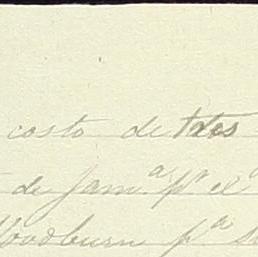 costo de tres
de Jam.ª pr el
Woodburn pª su